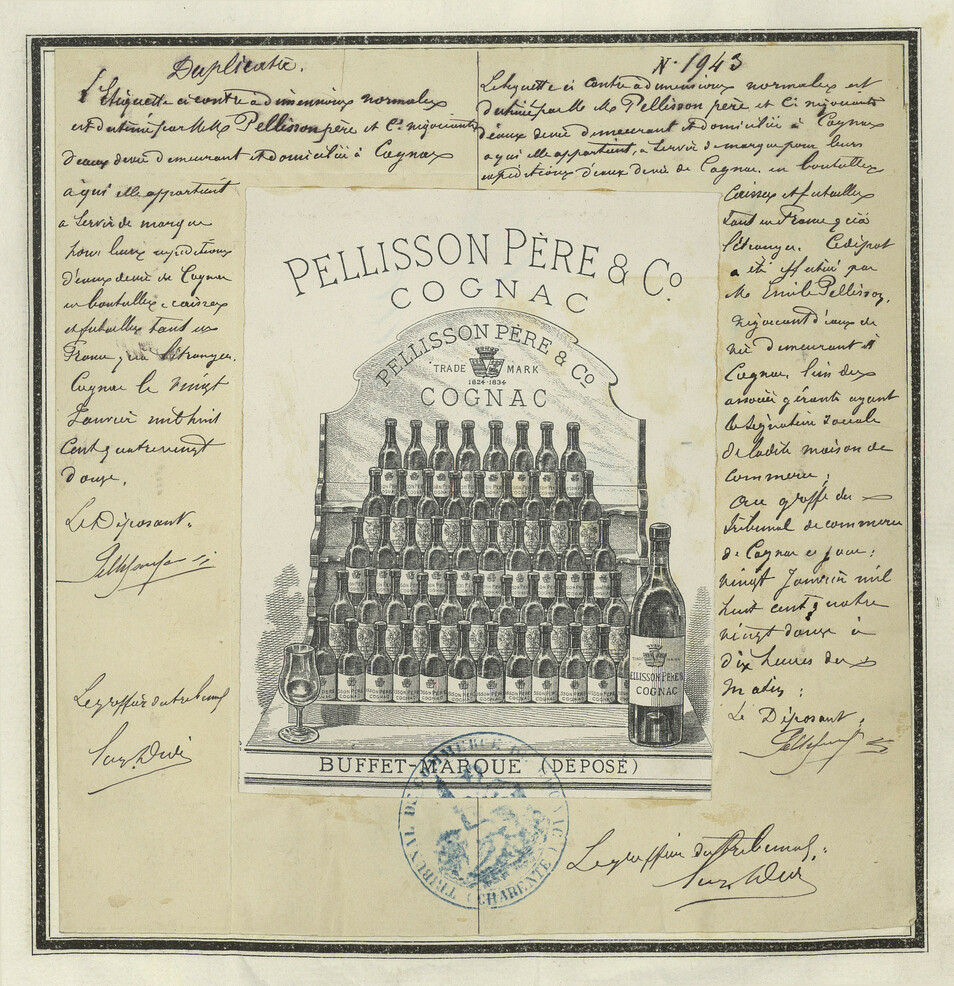 Duplicata.
L'étiquette ci contre a dimensions normales
est destinée par M.M. Pellisson père et Cie négociants
d'eaux devie demeurant et domiciliés à Cognac
a qui elle appartient
a servir de marque
pour leurs expéditions
d'eaux devie de Cognac
en bouteilles, caisses
et futailles tant en
France qu'à l'étranger.
Cognac le vingt
Janvier mil huit
Cent quatrevingt
douze.
Le Déposant.
Le greffier du tribunal
N° 1943
L'étiquette ci contre a dimensions normales est
destinée par M. M. Pellisson père et Cie négociants
d'eaux devie demeurant et domiciliés à Cognac
a qui elle appartient, a servir de marque pour leurs
expéditions d'eaux devie de Cognac, en bouteilles
Caisses et futailles
tant en France qu'à
l'étranger. Ce dépot
a été effectué par
M. Emile Pellisson,
négociant d'eaux de
vie demeurant à
Cognac, l'un des
associés gérants ayant
la signature sociale
de ladite maison de
Commerce;
Au greffe du
Tribunal de commerce
de Cognac ce jour:
vingt Janvier mil
huit cent quatre
vingt douze à
dix heures du
Matin;
Le Déposant;
Le greffier du tribunal;
PELLISSON PÈRE & Co.
COGNAC
PELLISSON PÈRE & Co
TRADE MARK
1824-1834
COGNAC
TRADE MARK
ELLISSON PÈRE &
COGNAC
BUFFET-MARQUE (DÉPOSÉ)
TRIBUNAL DE COMMERCE DE COGNAC (CHARENTE)